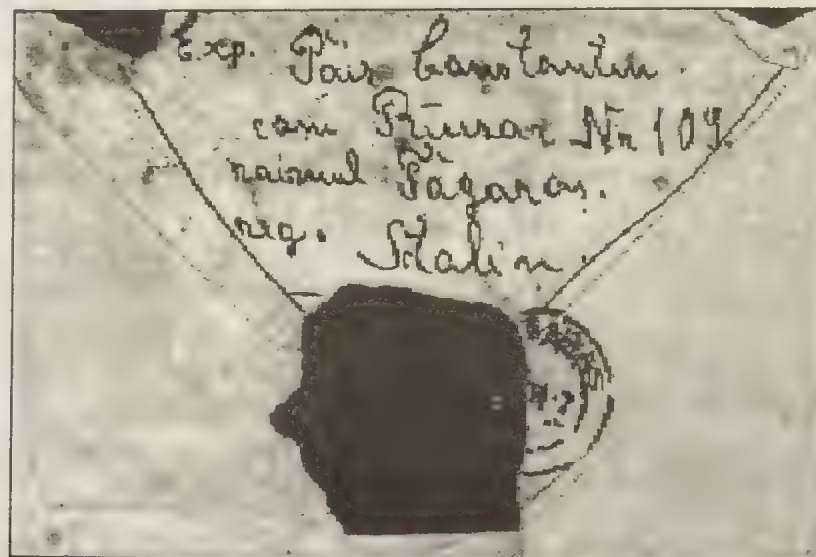 Exp. Pair Constantin.
com. Nr. 109.
raionul Făgăraș.
reg. Stalin.